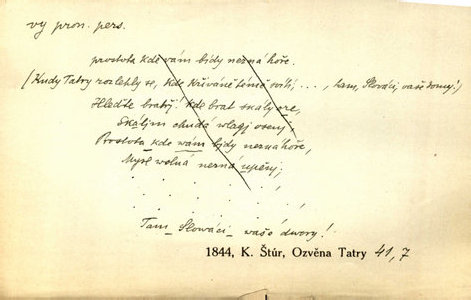 vy pron. pers.
prostota kde vám bídy nezná hoře.
(Kudy Tatry rozlehly se, kde Kriváně témě svítí ..., tam, Slováci, vaše domy!)
Hleďte bratří kde brat skaly oře,
Skalim chudá wlagj oseny;
Prostota kde wám bjdy nezná hoře,
Mysl wolná nezná upěny;
. . . . . .
. . . . . .
Tam Slowáci wašo dwory!
1844, K. Štúr, Ozvěna Tatry 41, 7